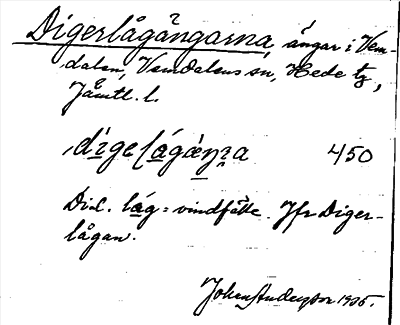 Digerlågångarna, ängar i Vem-
dalen, Vemdalens sn, Hede tg,
Jämtl. l.
450
Dial. låg = vindfälle. Jfr Diger-
lågan.
Johan Anderzon 1935.